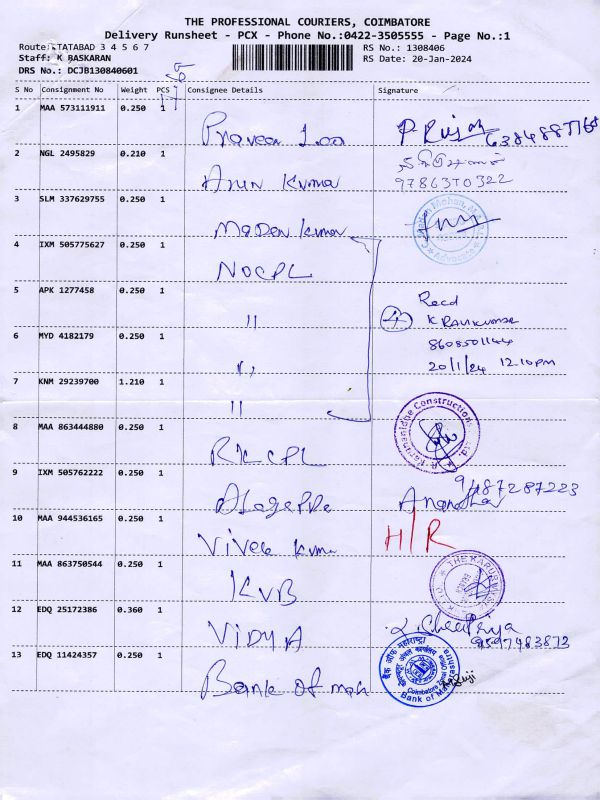 THE PROFESSIONAL COURIERS, COIMBATORE
Delivery Runsheet - PCX - Phone No.:0422-3505555 - Page No.:1
Route: TATABAD 3 4 5 6 7
RS No.: 1308406
Staff: K BASKARAN
RS Date: 20-Jan-2024
DRS No.: DCJB130840601
S No Consignment No Weight PCS Consignee Details Signature
1 MAA 573111911 0.250 1
Praveen
2 NGL 2495829 0.210 1
Arun Kumar
9786370322
3 SLM 337629755 0.250 1
Madan Kumar
4 IXM 505775627 0.250 1
NOCPL
5 APK 1277458 0.250 1
"
4 Recd
K RAVIKUMAR
8608501144
20/1/24 12.10pm
6 MYD 4182179 0.250 1
"
7 KNM 29239700 1.210 1
"
8 MAA 863444880 0.250 1
RKCPL
Karunanidhe Construction
9 IXM 505762222 0.250 1
10 MAA 944536165 0.250 1
Vivek Kumar
H/R
11 MAA 863750544 0.250 1
KVB
THE KARUR VYSYA
12 EDQ 25172386 0.360 1
VIDYA
9597483873
13 EDQ 11424357 0.250 1
Bank of mah
बैंक ऑफ महाराष्ट्र
Bank of Maharashtra